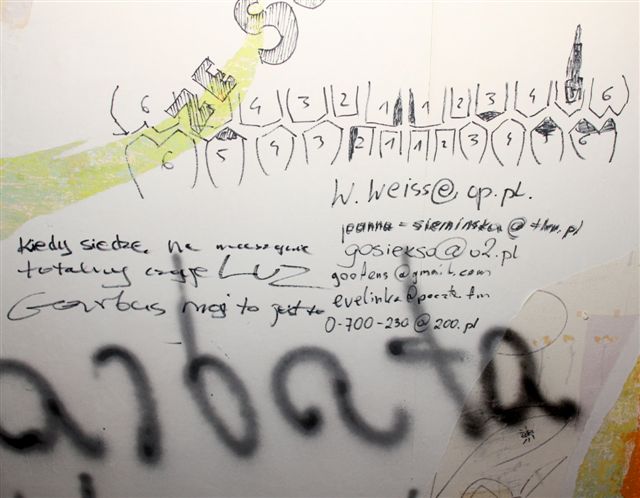 6 4 3 2 1 1 2 3 4 6
6 5 4 3 2 1 1 2 3 4 6
W.Weiss@op.pl.
gosiekso@o2.pl
gootens@gmail.com
evelinka@poczta.fm
0-700-230@200.pl
Kiedy siedzę na
totalny czuje LUZ
Garbus mój to jest
arbata